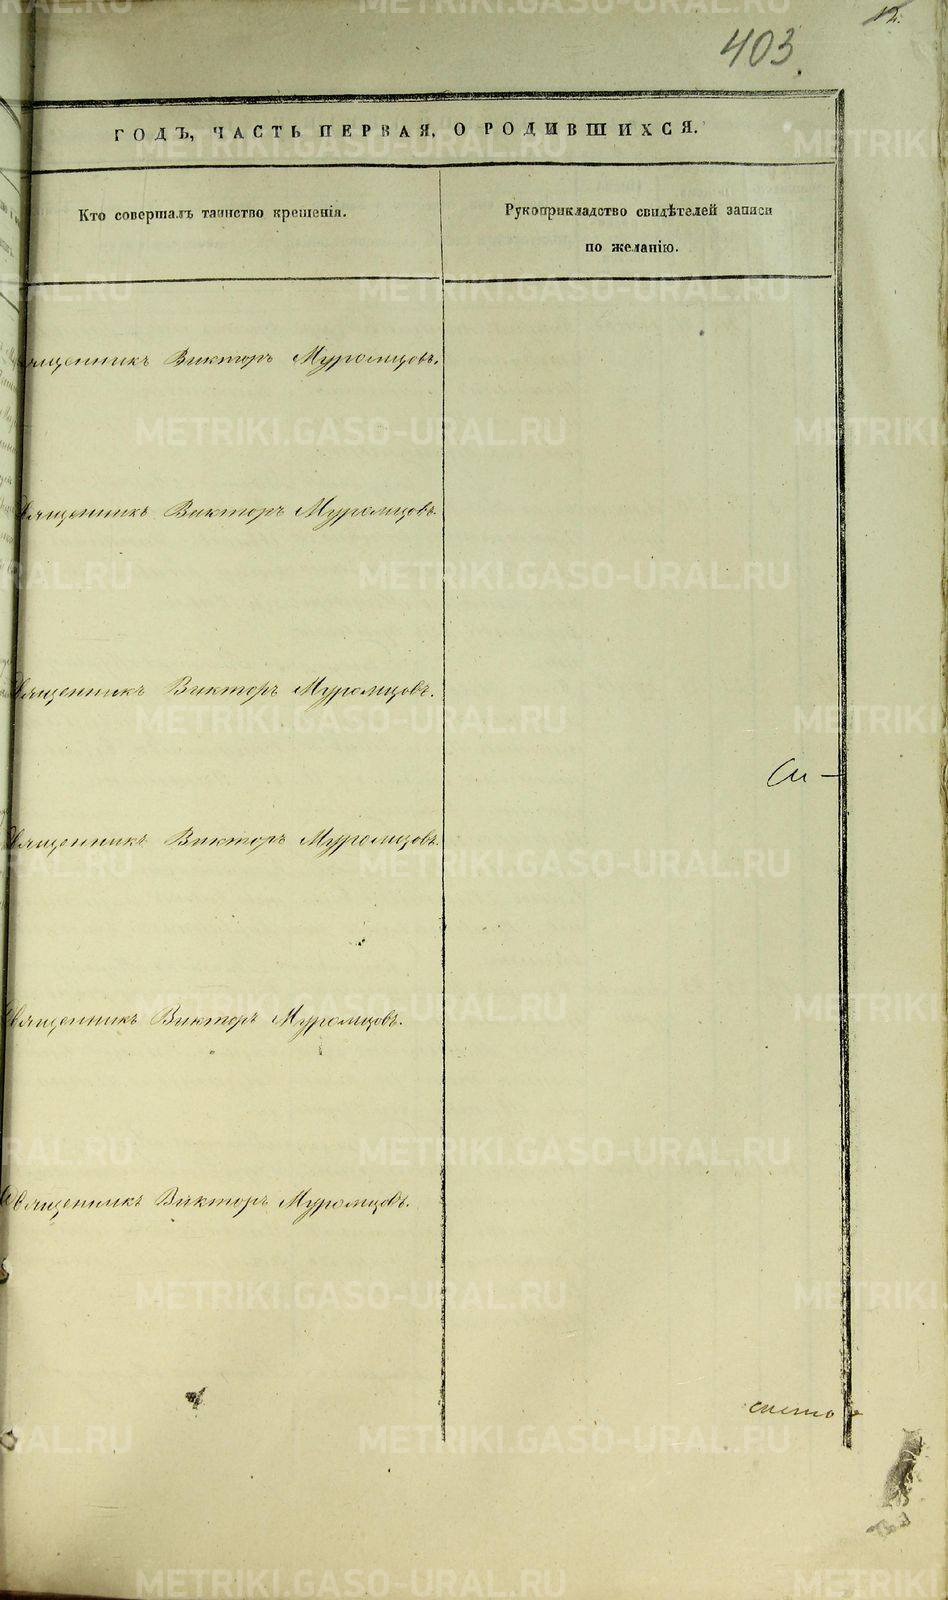 12.
403
ГОДЪ, ЧАСТЬ ПЕРВАЯ, О РОДИВШИХСЯ.
Кто совершалъ таинство крещенія.
Рукоприкладство свидѣтелей записи
по желанію.
Священникъ Викторъ Муромцовъ.
Священникъ Викторъ Муромцовъ.
Священникъ Викторъ Муромцовъ.
Священникъ Викторъ Муромцовъ.
Священникъ Викторъ Муромцовъ.
Священникъ Викторъ Муромцовъ.
METRIKI.GASO-URAL.RU